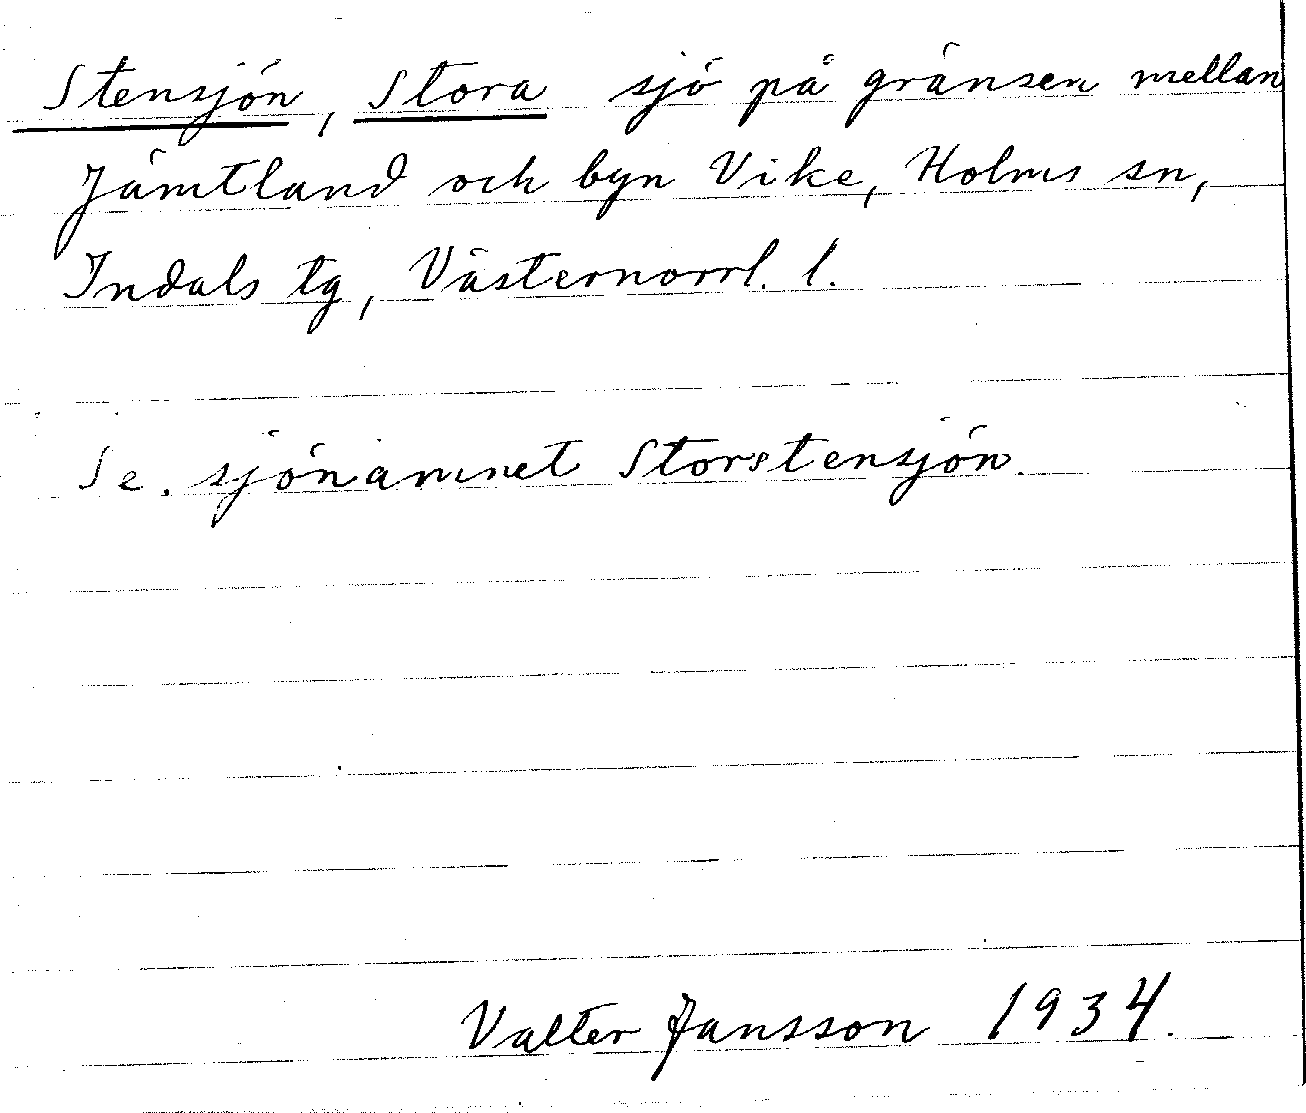 Stensjön, Stora sjö på gränsen mellan
Jämtland och byn Vike, Holms sn,
Indals tg, Västernorrl. l.
Se. sjönamnet Storstensjön.
Valter Jansson 1934.